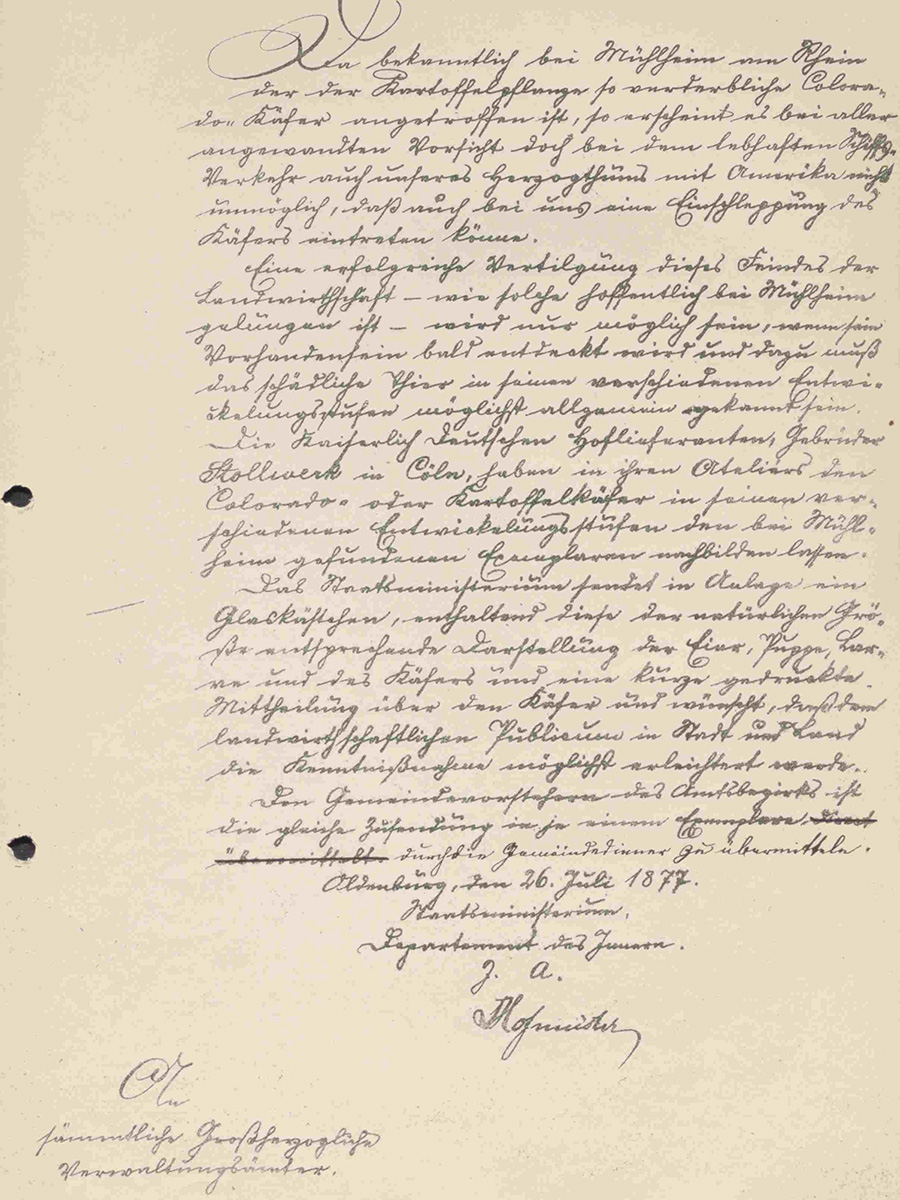 Da bekanntlich bei Mühlheim am Rhein
der der Kartoffelpflanze so verderbliche Colora-
do-Käfer angetroffen ist, so erscheint es bei aller
angewandten Vorsicht doch bei dem lebhaften Schiffs-
Verkehr auch unseres Herzogthums mit Amerika nicht
unmöglich, daß auch bei uns eine Einschleppung des
Käfers eintreten könne.
Eine erfolgreiche Vertilgung dieses Feindes der
Landwirthschaft – wie solche hoffentlich bei Mühlheim
gelungen ist – wird nur möglich sein, wenn sein
Vorhandensein bald entdeckt wird und dazu muß
das schädliche Thier in seinen verschiedenen Entwi-
ckelungsstufen möglichst allgemein gekannt sein.
Die Kaiserlich Deutschen Hoflieferanten, Gebrüder
Stollwerk in Cöln, haben in ihren Ateliers den
Colorado- oder Kartoffelkäfer in seinen ver-
schiedenen Entwickelungsstufen den bei Mühl-
heim gefundenen Exemplaren nachbilden lassen.
Das Staatsministerium sendet in Anlage ein
Glaskästchen, enthaltend diese der natürlichen Grö-
ße entsprechende Darstellung der Eier, Puppe, Lar-
ve und des Käfers und eine kurze gedruckte
Mittheilung über den Käfer und wünscht, daß dem
landwirthschaftlichen Publicum in Stadt und Land
die Kenntnißnahme möglichst erleichtert werde.
Den Gemeindevorstehern des Amtsbezirks ist
die gleiche Zusendung in je einem Exemplare direct
übermittelt. durch die Gemeindediener zu übermitteln.
Oldenburg, den 26. Juli 1877.
Staatsministerium,
Departement des Innern.
J. A.
Hofmeister
An
sämmtliche Großherzogliche
Verwaltungsämter.